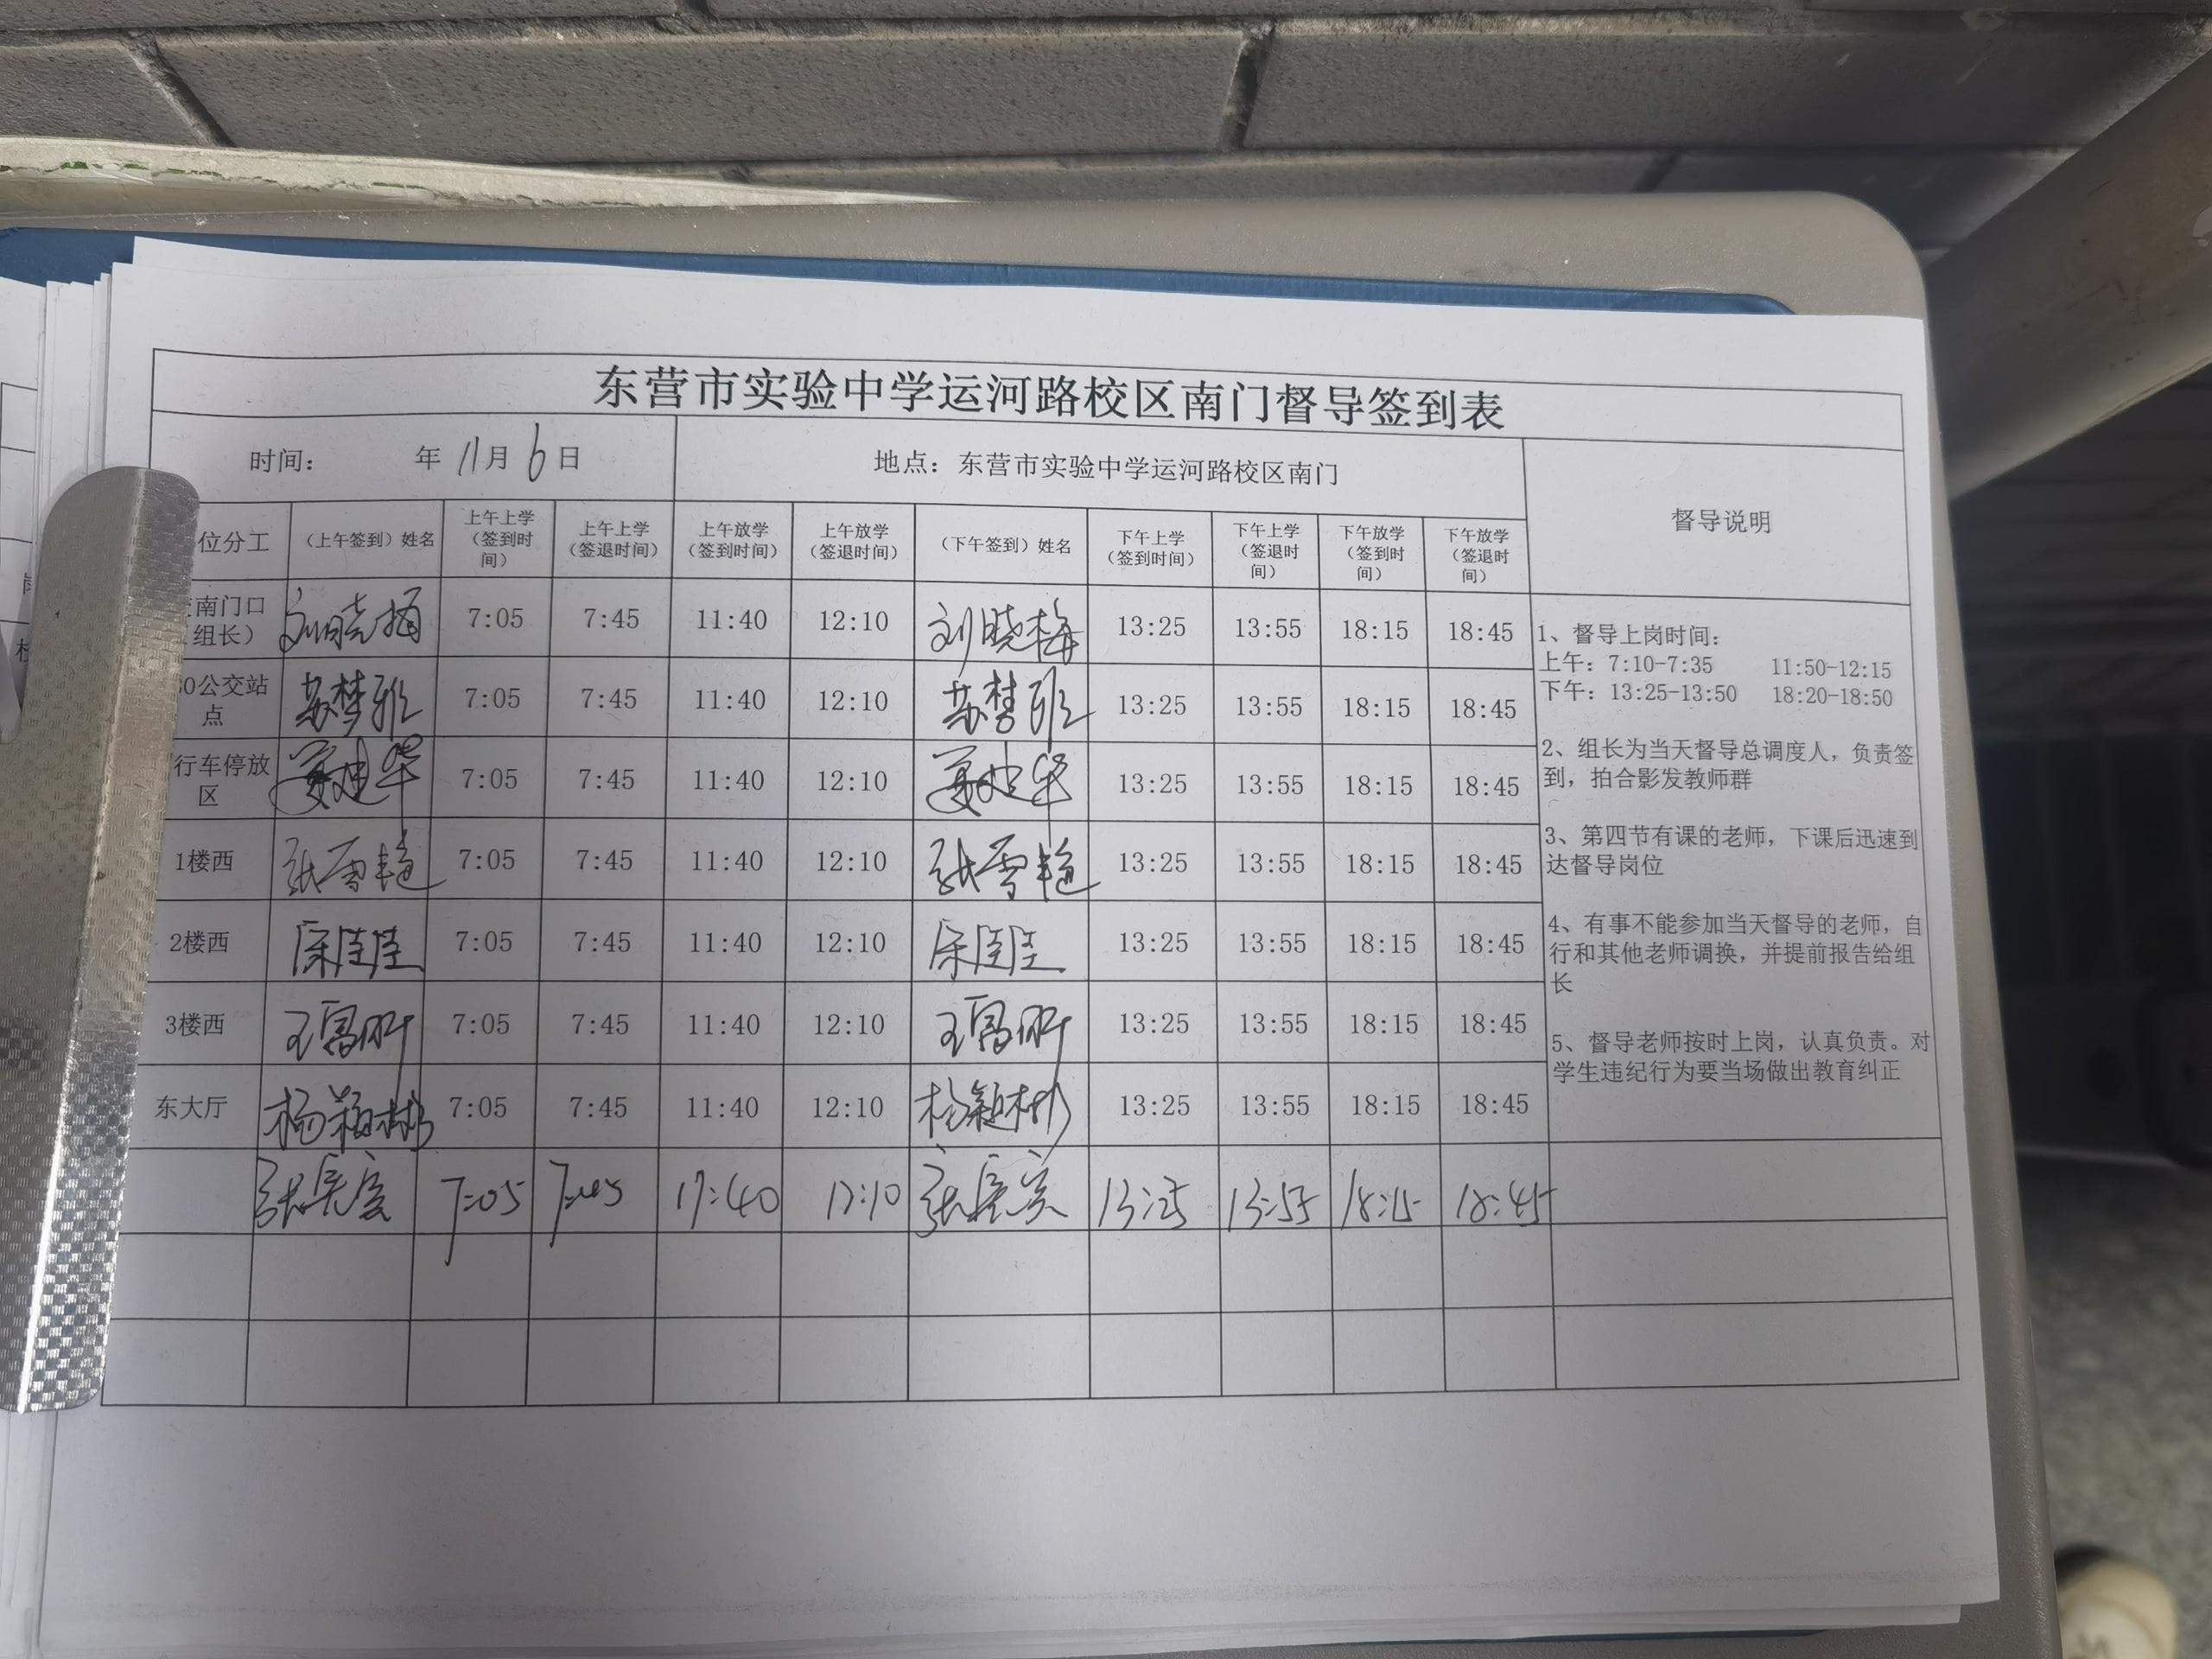 东营市实验中学运河路校区南门督导签到表
时间： 年 11月 6日 地点：东营市实验中学运河路校区南门 督导说明
位分工 （上午签到）姓名 上午上学（签到时间） 上午上学（签退时间） 上午放学（签到时间） 上午放学（签退时间） （下午签到）姓名 下午上学（签到时间） 下午上学（签退时间） 下午放学（签到时间） 下午放学（签退时间）
南门口组长） 刘晓梅 7:05 7:45 11:40 12:10 刘晓梅 13:25 13:55 18:15 18:45
0公交站点 苏梦雅 7:05 7:45 11:40 12:10 苏梦雅 13:25 13:55 18:15 18:45
行车停放区 7:05 7:45 11:40 12:10 13:25 13:55 18:15 18:45
1楼西 张雪艳 7:05 7:45 11:40 12:10 张雪艳 13:25 13:55 18:15 18:45
2楼西 宋佳佳 7:05 7:45 11:40 12:10 宋佳佳 13:25 13:55 18:15 18:45
3楼西 7:05 7:45 11:40 12:10 13:25 13:55 18:15 18:45
东大厅 杨颖彬 7:05 7:45 11:40 12:10 杨颖彬 13:25 13:55 18:15 18:45
7:05 7:45 11:40 12:10 13:25 13:55 18:15 18:45
1、督导上岗时间：
上午：7:10-7:35 11:50-12:15
下午：13:25-13:50 18:20-18:50
2、组长为当天督导总调度人，负责签
到，拍合影发教师群
3、第四节有课的老师，下课后迅速到
达督导岗位
4、有事不能参加当天督导的老师，自
行和其他老师调换，并提前报告给组
长
5、督导老师按时上岗，认真负责。对
学生违纪行为要当场做出教育纠正